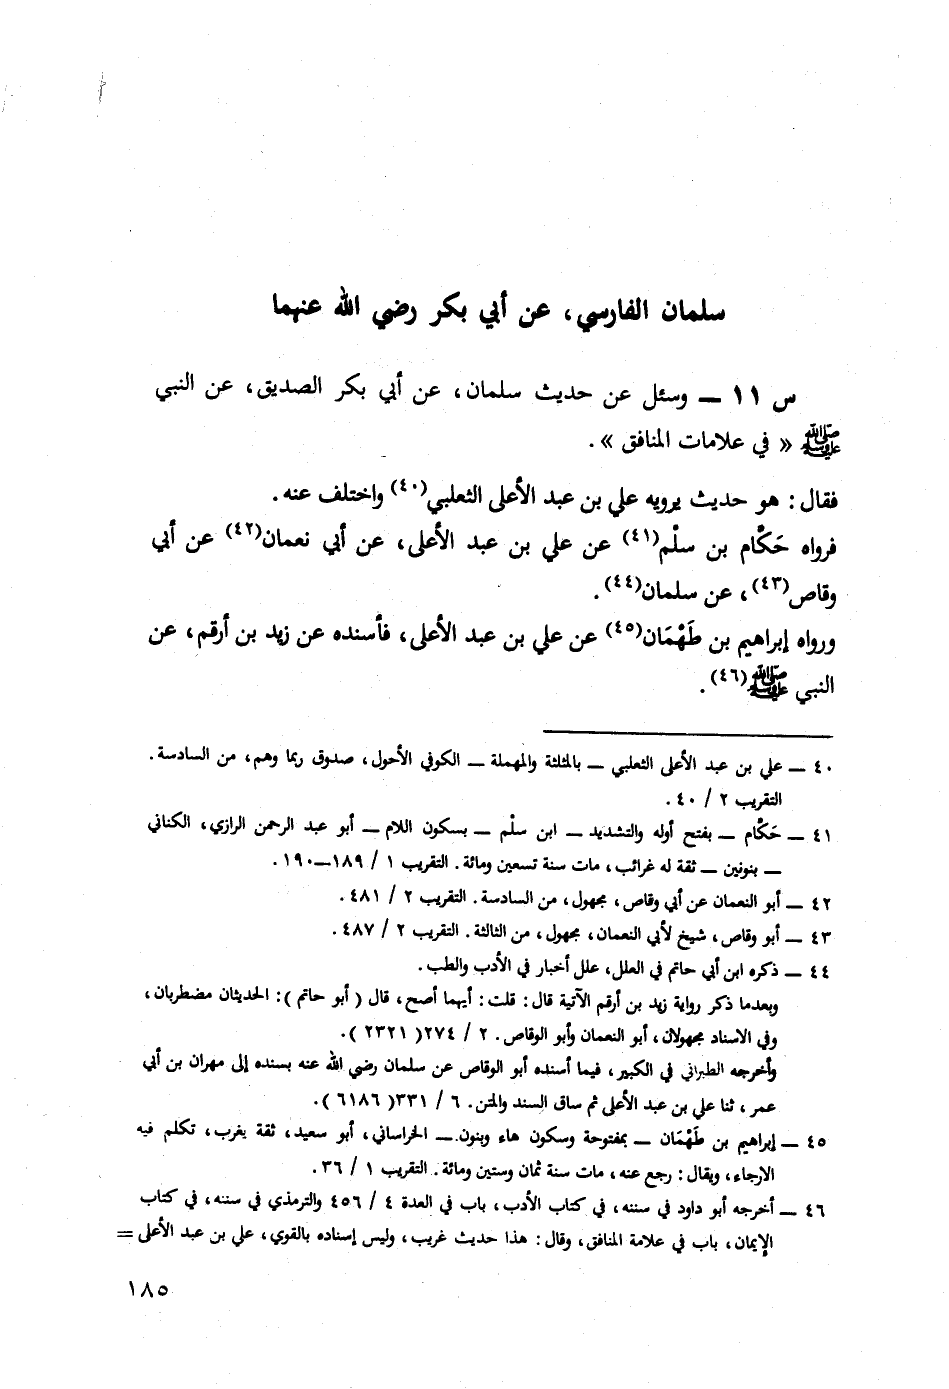 سلمان الفارسي، عن أبي بكر رضي الله عنهما
س ١١ ــ وسئل عن حديث سلمان، عن أبي بكر الصديق، عن النبي
ﷺ « في علامات المنافق ».
فقال: هو حديث يرويه علي بن عبد الأعلى الثعلبي(٤٠) واختلف عنه.
فرواه حَكَّام بن سلْم(٤١) عن علي بن عبد الأعلى، عن أبي نعمان(٤٢) عن أبي
وقاص(٤٣)، عن سلمان(٤٤).
ورواه إبراهيم بن طَهْمَان(٤٥) عن علي بن عبد الأعلى، فأسنده عن زيد بن أرقم، عن
النبي ﷺ(٤٦).
٤٠ ــ علي بن عبد الأعلى الثعلبي ــ بالمثلثة والمهملة ــ الكوفي الأحول، صدوق ربما وهم، من السادسة.
التقريب ٢ / ٤٠.
٤١ ــ حَكَّام ــ بفتح أوله والتشديد ــ ابن سلْم ــ بسكون اللام ــ أبو عبد الرحمن الرازي، الكناني
ــ بنونين ــ ثقة له غرائب، مات سنة تسعين ومائة. التقريب ١ / ١٨٩ــ١٩٠.
٤٢ ــ أبو النعمان عن أبي وقاص، مجهول، من السادسة. التقريب ٢ / ٤٨١.
٤٣ ــ أبو وقاص، شيخ لأبي النعمان، مجهول، من الثالثة. التقريب ٢ / ٤٨٧.
٤٤ ــ ذكره ابن أبي حاتم في العلل، علل أخبار في الأدب والطب.
وبعدما ذكر رواية زيد بن أرقم الآتية قال: قلت: أيهما أصح، قال ( أبو حاتم ): الحديثان مضطربان،
وفي الاسناد مجهولان، أبو النعمان وأبو الوقاص. ٢ / ٢٧٤( ٢٣٢١ ).
وأخرجه الطبراني في الكبير، فيما أسنده أبو الوقاص عن سلمان رضي الله عنه بسنده إلى مهران بن أبي
عمر، ثنا علي بن عبد الأعلى ثم ساق السند والمتن. ٦ / ٣٣١( ٦١٨٦ ).
٤٥ ــ إبراهيم بن طَهْمَان ــ بمفتوحة وسكون هاء وبنون ــ الخراساني، أبو سعيد، ثقة يغرب، تكلم فيه
الارجاء، ويقال: رجع عنه، مات سنة ثمان وستين ومائة. التقريب ١ / ٣٦.
٤٦ ــ أخرجه أبو داود في سننه، في كتاب الأدب، باب في العدة ٤ / ٤٥٦ والترمذي في سننه، في كتاب
الإيمان، باب في علامة المنافق، وقال: هذا حديث غريب، وليس إسناده بالقوي، علي بن عبد الأعلى =
١٨٥